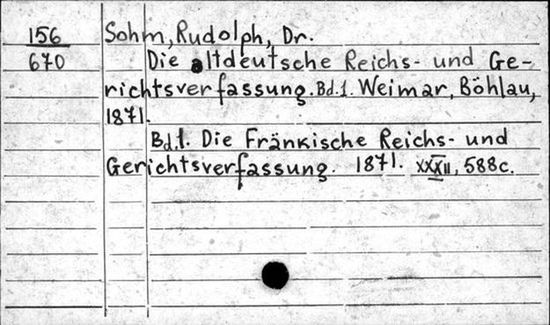 156
670
Sohm, Rudolph, Dr.
Die altdeutsche Reichs- und Ge-
richtsverfassung. Bd.1. Weimar, Böhlau,
1871.
Bd.1. Die Fränkische Reichs- und
Gerichtsverfassung. 1871. XXXII, 588c.